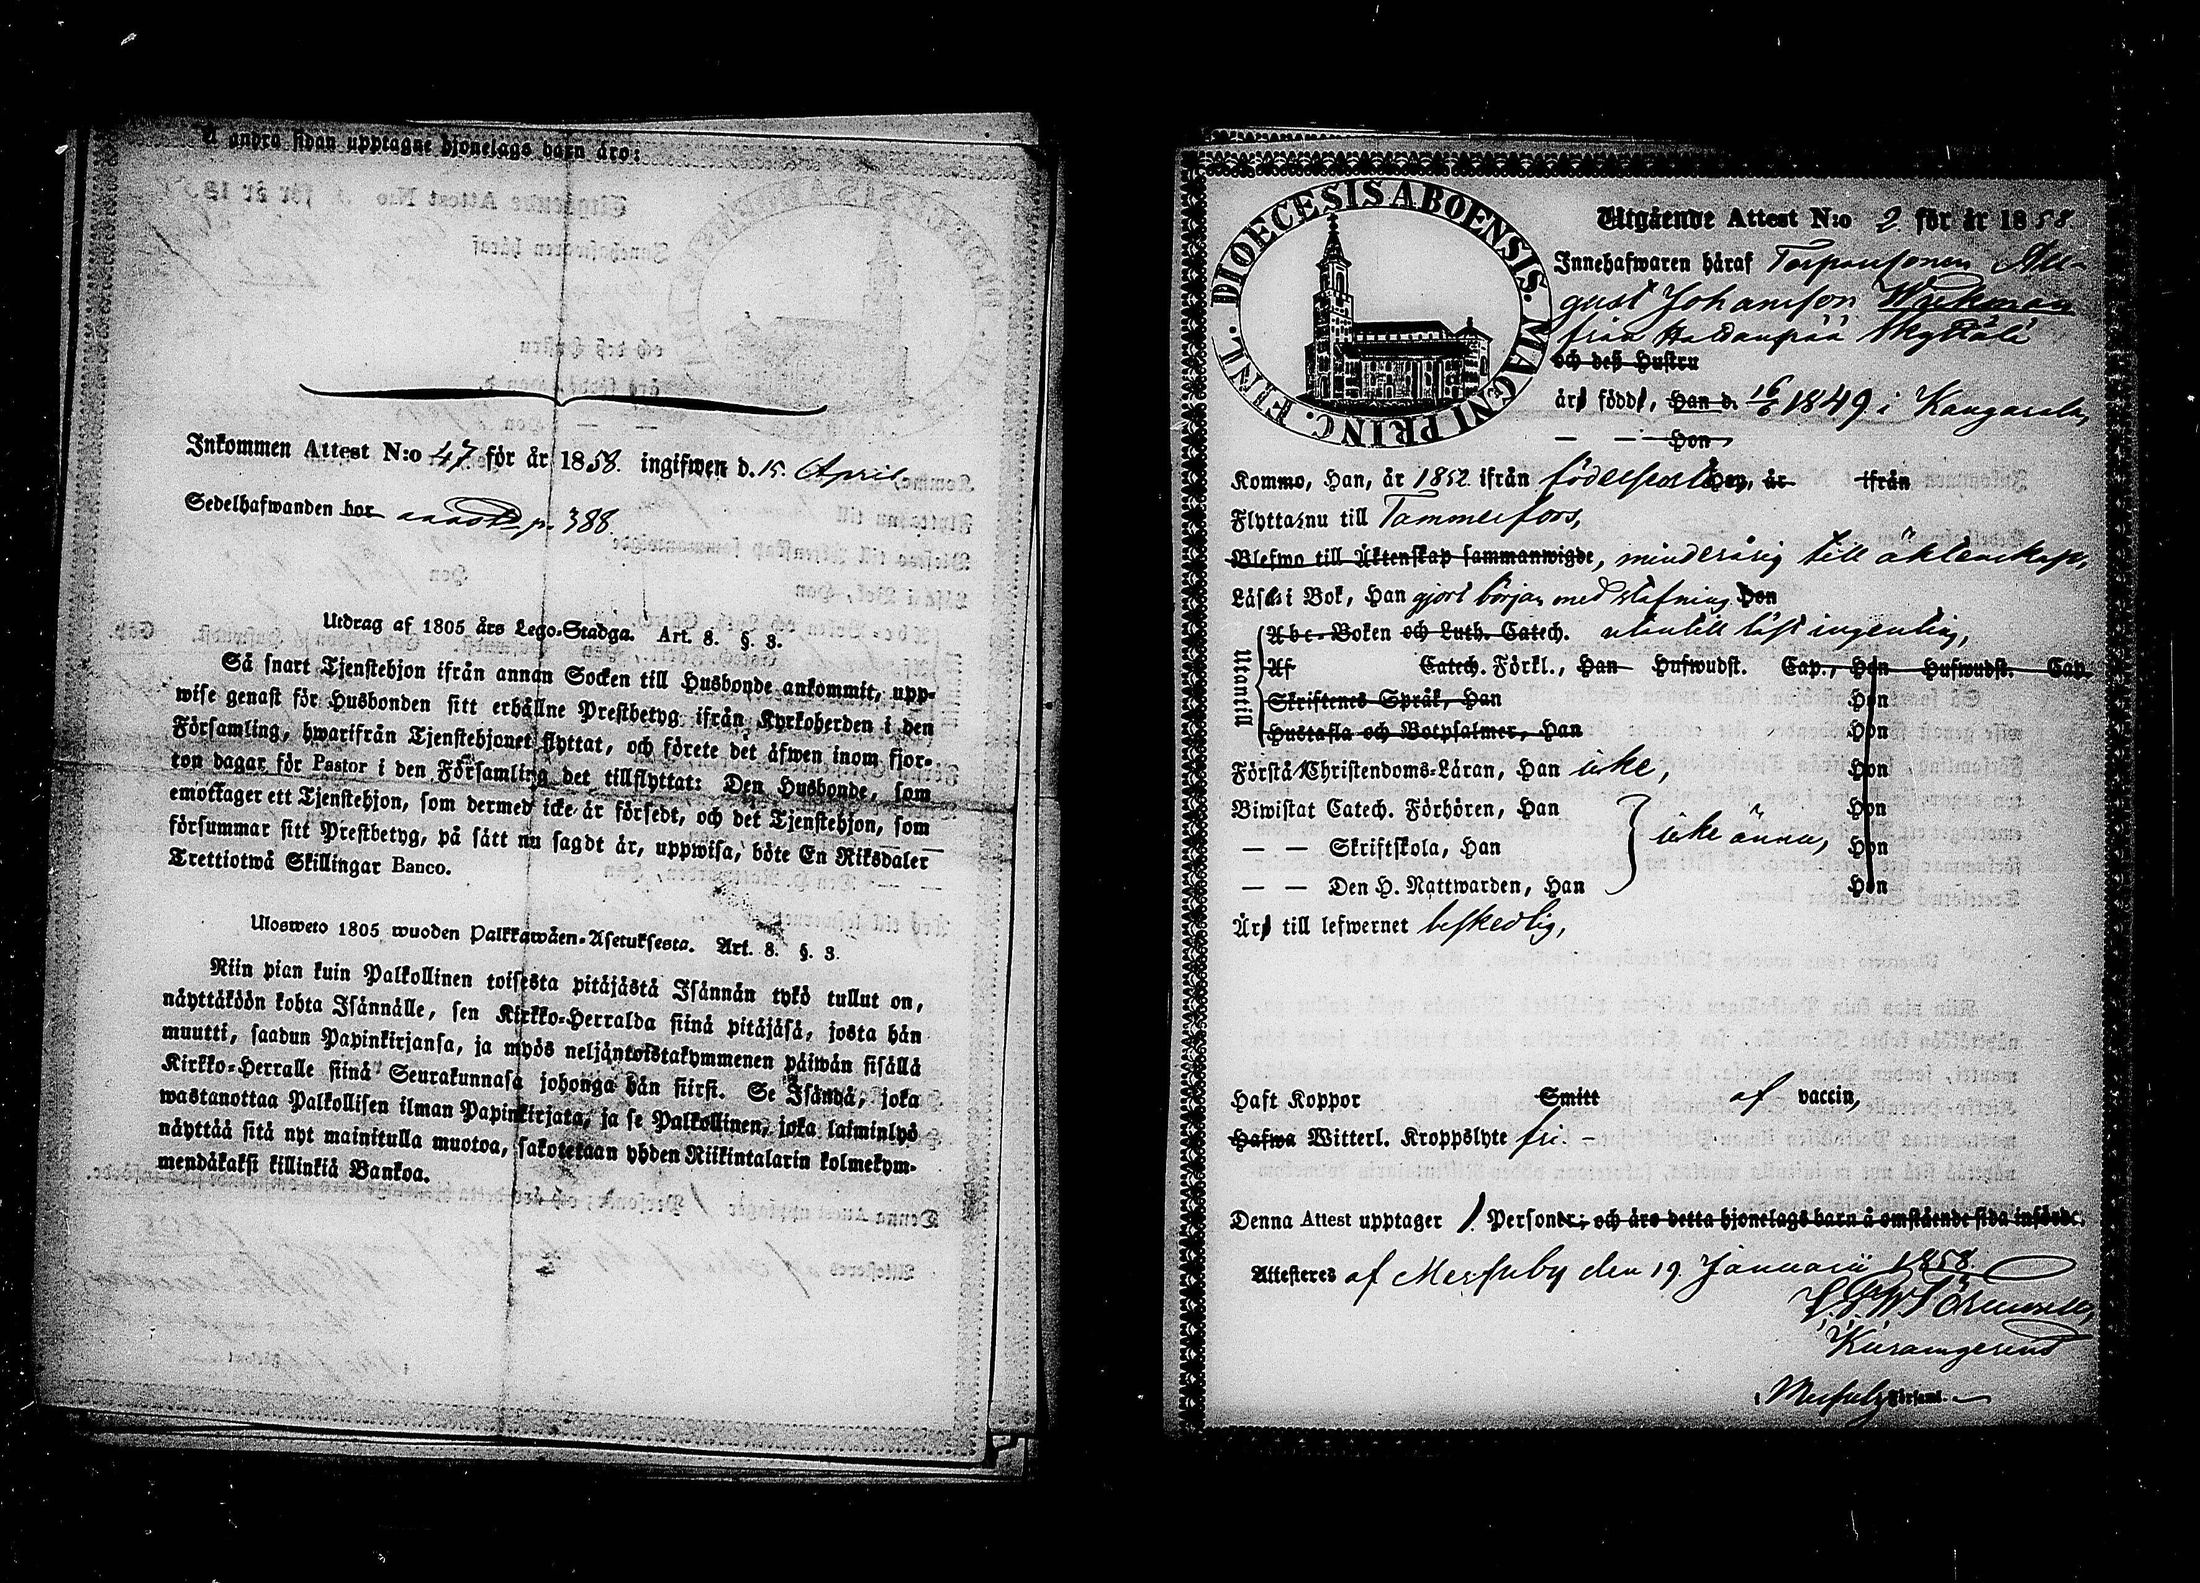 Å andra sidan upptagne hjonelags barn äro:
Inkommen Attest N:o 47 för år 1858. ingifwen d. 15. April.
Sedelhafwanden bor p. 388.
Utdrag af 1805 års Lego-Stadga. Art. 8. §. 3.
Så snart Tjenstehjon ifrån annan Socken till Husbonde ankommit, upp-
wise genast för Husbonden sitt erhållne Prestbetyg ifrån Kyrkoherden i den
Församling, hwarifrån Tjenstehjonet flyttat, och förete det äfwen inom fjor-
ton dagar för Pastor i den Församling det tillflyttat: Den Husbonde, som
emottager ett Tjenstehjon, som dermed icke är försedt, och det Tjenstehjon, som
försummar sitt Prestbetyg, på sätt nu sagdt är, uppwisa, böte En Riksdaler
Trettiotwå Skillingar Banco.
Ulosweto 1805 wuoden Palkkawäen-Asetuksesta. Art. 8. §. 3.
Niin pian kuin Palkollinen toisesta pitäjästä Isännän tykö tullut on,
näyttäköön kohta Isännälle, sen Kirkko-Herralda siinä pitäjäsä, josta hän
muutti, saadun Papinkirjansa, ja myös neljäntoistakymmenen päiwän sisällä
Kirkko-Herralle siinä Seurakunnasa johonga hän siirsi. Se Isändä, joka
wastanottaa Palkollisen ilman Papinkirjata, ja se Palkollinen, joka laiminlyö
näyttää sitä nyt mainitulla muotoa, sakotetaan yhden Riikintalarin kolmekym-
mendäkaksi killinkiä Bankoa.
FINL. DIOECESIS ABOENSIS. MAGNI PRINC.
Utgående Attest N:o 2 för år 1858.
Innehafwaren häraf Torparesonen Au-
gust Johansson Wickman
från Haldanpää Skyttälä
och deß Hustru
är född, Han d. 16/6 1849 i Kangasala,
— — Hon
Kommo, Han, år 1852 ifrån födelseort Hon, år ifrån
Flytta nu till Tammerfors,
Blefwo till Äktenskap sammanwigde, minderårig till äktenskap,
Läsa i Bok, Han gjort början med stafning Hon
Utantill
Abc-Boken och Luth. Catech. utantill läst ingenting,
Af Catech. Förkl., Han Hufwudst. Cap., Hon Hufwudst. Cap.
Skriftenes Språk, Han Hon
Hustafla och Botpsalmer, Han Hon
Förstå Christendoms-Läran, Han icke, Hon
Biwistat Catech. Förhören, Han Hon
— — Skriftskola, Han icke ännu, Hon
— — Den H. Nattwarden, Han Hon
Är till lefwernet beskedlig,
Haft Koppor Smitt af vaccin,
Hafwa Witterl. Kroppslyte fri. –
Denna Attest upptager 1. Personer; och äro detta hjonelags barn å omstående sida införde.
Attesteres af Messuby den 19 Januarii 1858.
i Messuby Församl.